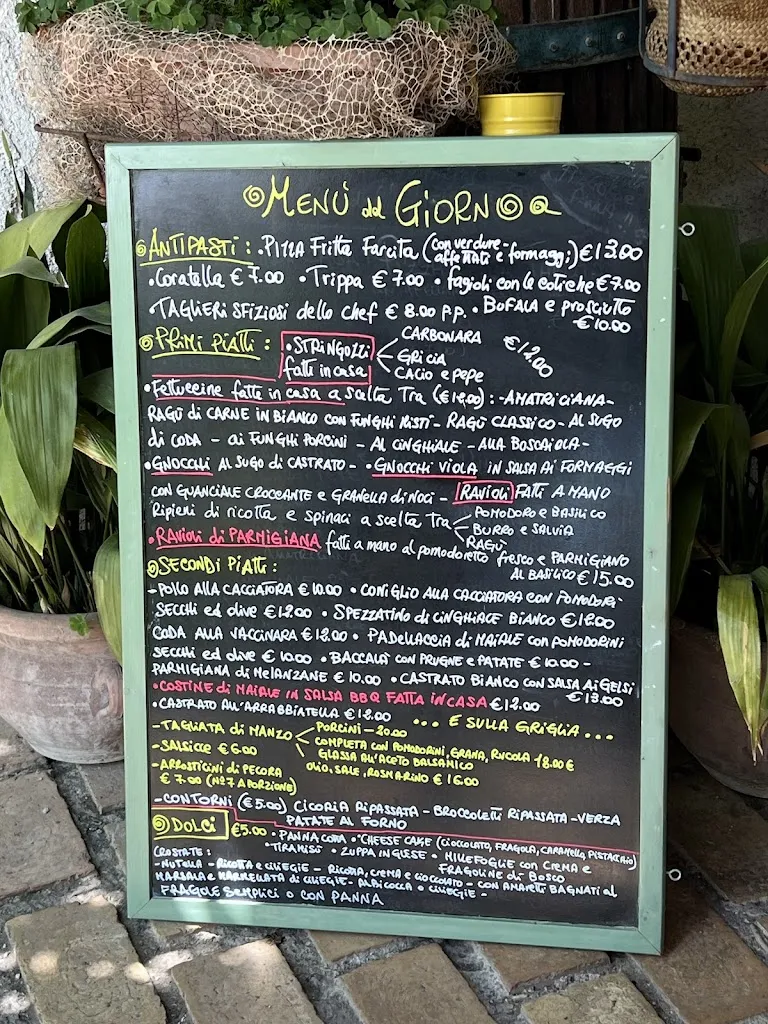 MENÙ del GIORNO
ANTIPASTI: • PIZZA Fritta Farcita (con verdure - affettati e formaggi) € 13.00
• Coratella € 7.00 • Trippa € 7.00 • fagioli con le cotiche € 7.00
• TAGLIERI SFIZIOSI dello chef € 8.00 P.P. • BUFALA e prosciutto € 10.00
PRIMI PIATTI: • STRINGOZZI fatti in casa
CARBONARA
GRICIA
CACIO e pepe
€ 12.00
• Fettuccine fatte in casa a scelta Tra (€ 12.00): - AMATRICIANA -
RAGÙ di CARNE IN BIANCO con FUNGHI MISTI - RAGÙ CLASSICO - AL SUGO
di CODA - ai FUNGHI PORCINI - AL CINGHIALE - ALLA BOSCAIOLA -
• GNOCCHI AL SUGO di CASTRATO - • GNOCCHI VIOLA IN SALSA AI FORMAGGI
CON GUANCIALE CROCCANTE e GRANELLA di NOCI - RAVIOLI FATTI A MANO
Ripieni di ricotta e spinaci a scelta Tra
POMODORO e BASILICO
BURRO e SALVIA
RAGÙ
• RAVIOLI di PARMIGIANA fatti a mano al pomodoretto fresco e PARMIGIANO
AL BASILICO € 15.00
SECONDI PIATTI:
- POLLO ALLA CACCIATORA € 10.00 • CONIGLIO ALLA CACCIATORA con POMODORI
SECCHI ed olive € 12.00 • SPEZZATINO di CINGHIALE BIANCO € 12.00
CODA ALLA VACCINARA € 12.00 • PADELLACCIA di MAIALE con POMODORINI
SECCHI ed olive € 10.00 • BACCALÀ CON PRUGNE e PATATE € 10.00 -
PARMIGIANA di MELANZANE € 10.00 • CASTRATO BIANCO con SALSA AI GELSI
€ 13.00
• COSTINE di MAIALE IN SALSA BBQ FATTA IN CASA € 12.00
• CASTRATO ALL'ARRABBIATELLA € 12.00
... E SULLA GRIGLIA ...
- TAGLIATA di MANZO
PORCINI - 20.00
COMPLETA con POMODORINI, GRANA, RUCOLA 18.00 €
GLASSA ALL'ACETO BALSAMICO
OLIO, SALE, ROSMARINO € 16.00
- SALSICCE € 6.00
- ARROSTICINI di PECORA
€ 7.00 (N°7 A PORZIONE)
- CONTORNI (€ 5.00) CICORIA RIPASSATA - BROCCOLETTI RIPASSATA - VERZA
PATATE AL FORNO
DOLCI € 5.00 • PANNA COTTA • CHEESE CAKE (CIOCCOLATO, FRAGOLA, CARAMELLO, PISTACCHIO)
• TIRAMISÙ • ZUPPA INGLESE • MILLEFOGLIE con CREMA e
FRAGOLINE di BOSCO
CROSTATE:
- NUTELLA - RICOTTA e CILIEGIE - RICOTTA, CREMA e CIOCCOLATO - CON AMARETTI BAGNATI al
MARSALA e MARMELLATA di CILIEGIE - ALBICOCCA o CILIEGIE -
FRAGOLE SEMPLICI o CON PANNA